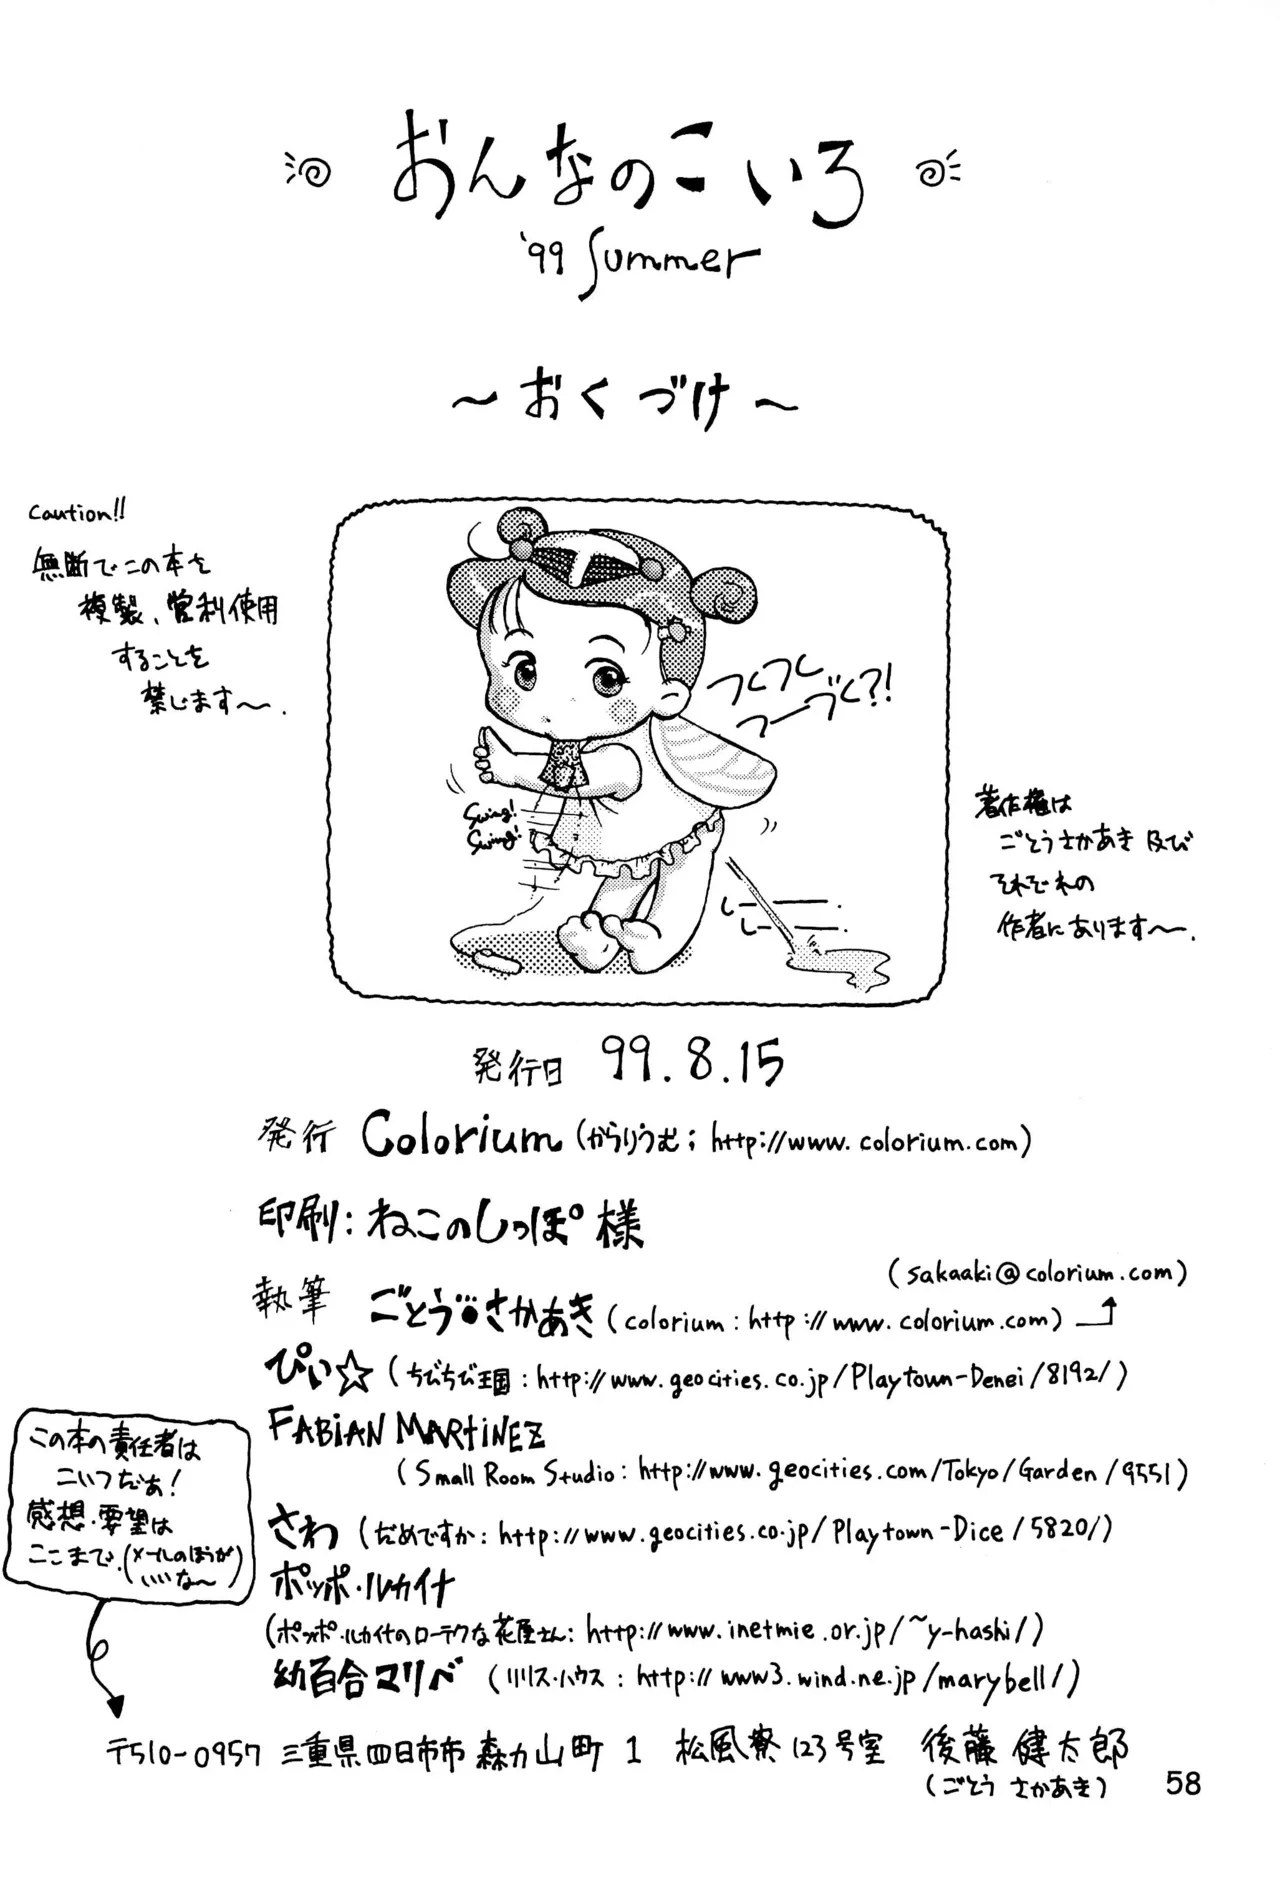 おんなのこいろ
'99 Summer
～おくづけ～
Caution!!
無断でこの本を
複製、営利使用
することを
禁じます～.
つくつく
つーづく?!
Swing!
Swing!
しー
しー
著作権は
ごとうさかあき 及び
それぞれの
作者にあります～.
発行日 99.8.15
発行 Colorium (からりうむ; http://www.colorium.com)
印刷: ねこのしっぽ 様
(sakaaki@colorium.com)
執筆 ごとう・さかあき (colorium: http://www.colorium.com)
ぴぃ☆ (ちびちび王国: http://www.geocities.co.jp/Playtown-Denei/8192/)
FABiAN MARtiNEZ
(Small Room Studio: http://www.geocities.com/Tokyo/Garden/9551)
さわ (だめですか: http://www.geocities.co.jp/Playtown-Dice/5820/)
ポッポ・ルカイナ
(ポッポ・ルカイナのローテクな花屋さん: http://www.inetmie.or.jp/~y-hashi/)
幼百合マリベ (リリス・ハウス: http://www3.wind.ne.jp/marybell/)
この本の責任者は
こいつだぁ!
感想・要望は
ここまで. (メールのほうが
いいな～)
〒510-0957 三重県四日市市 森カ山町 1 松風寮123号室 後藤 健太郎
(ごとう さかあき)
58